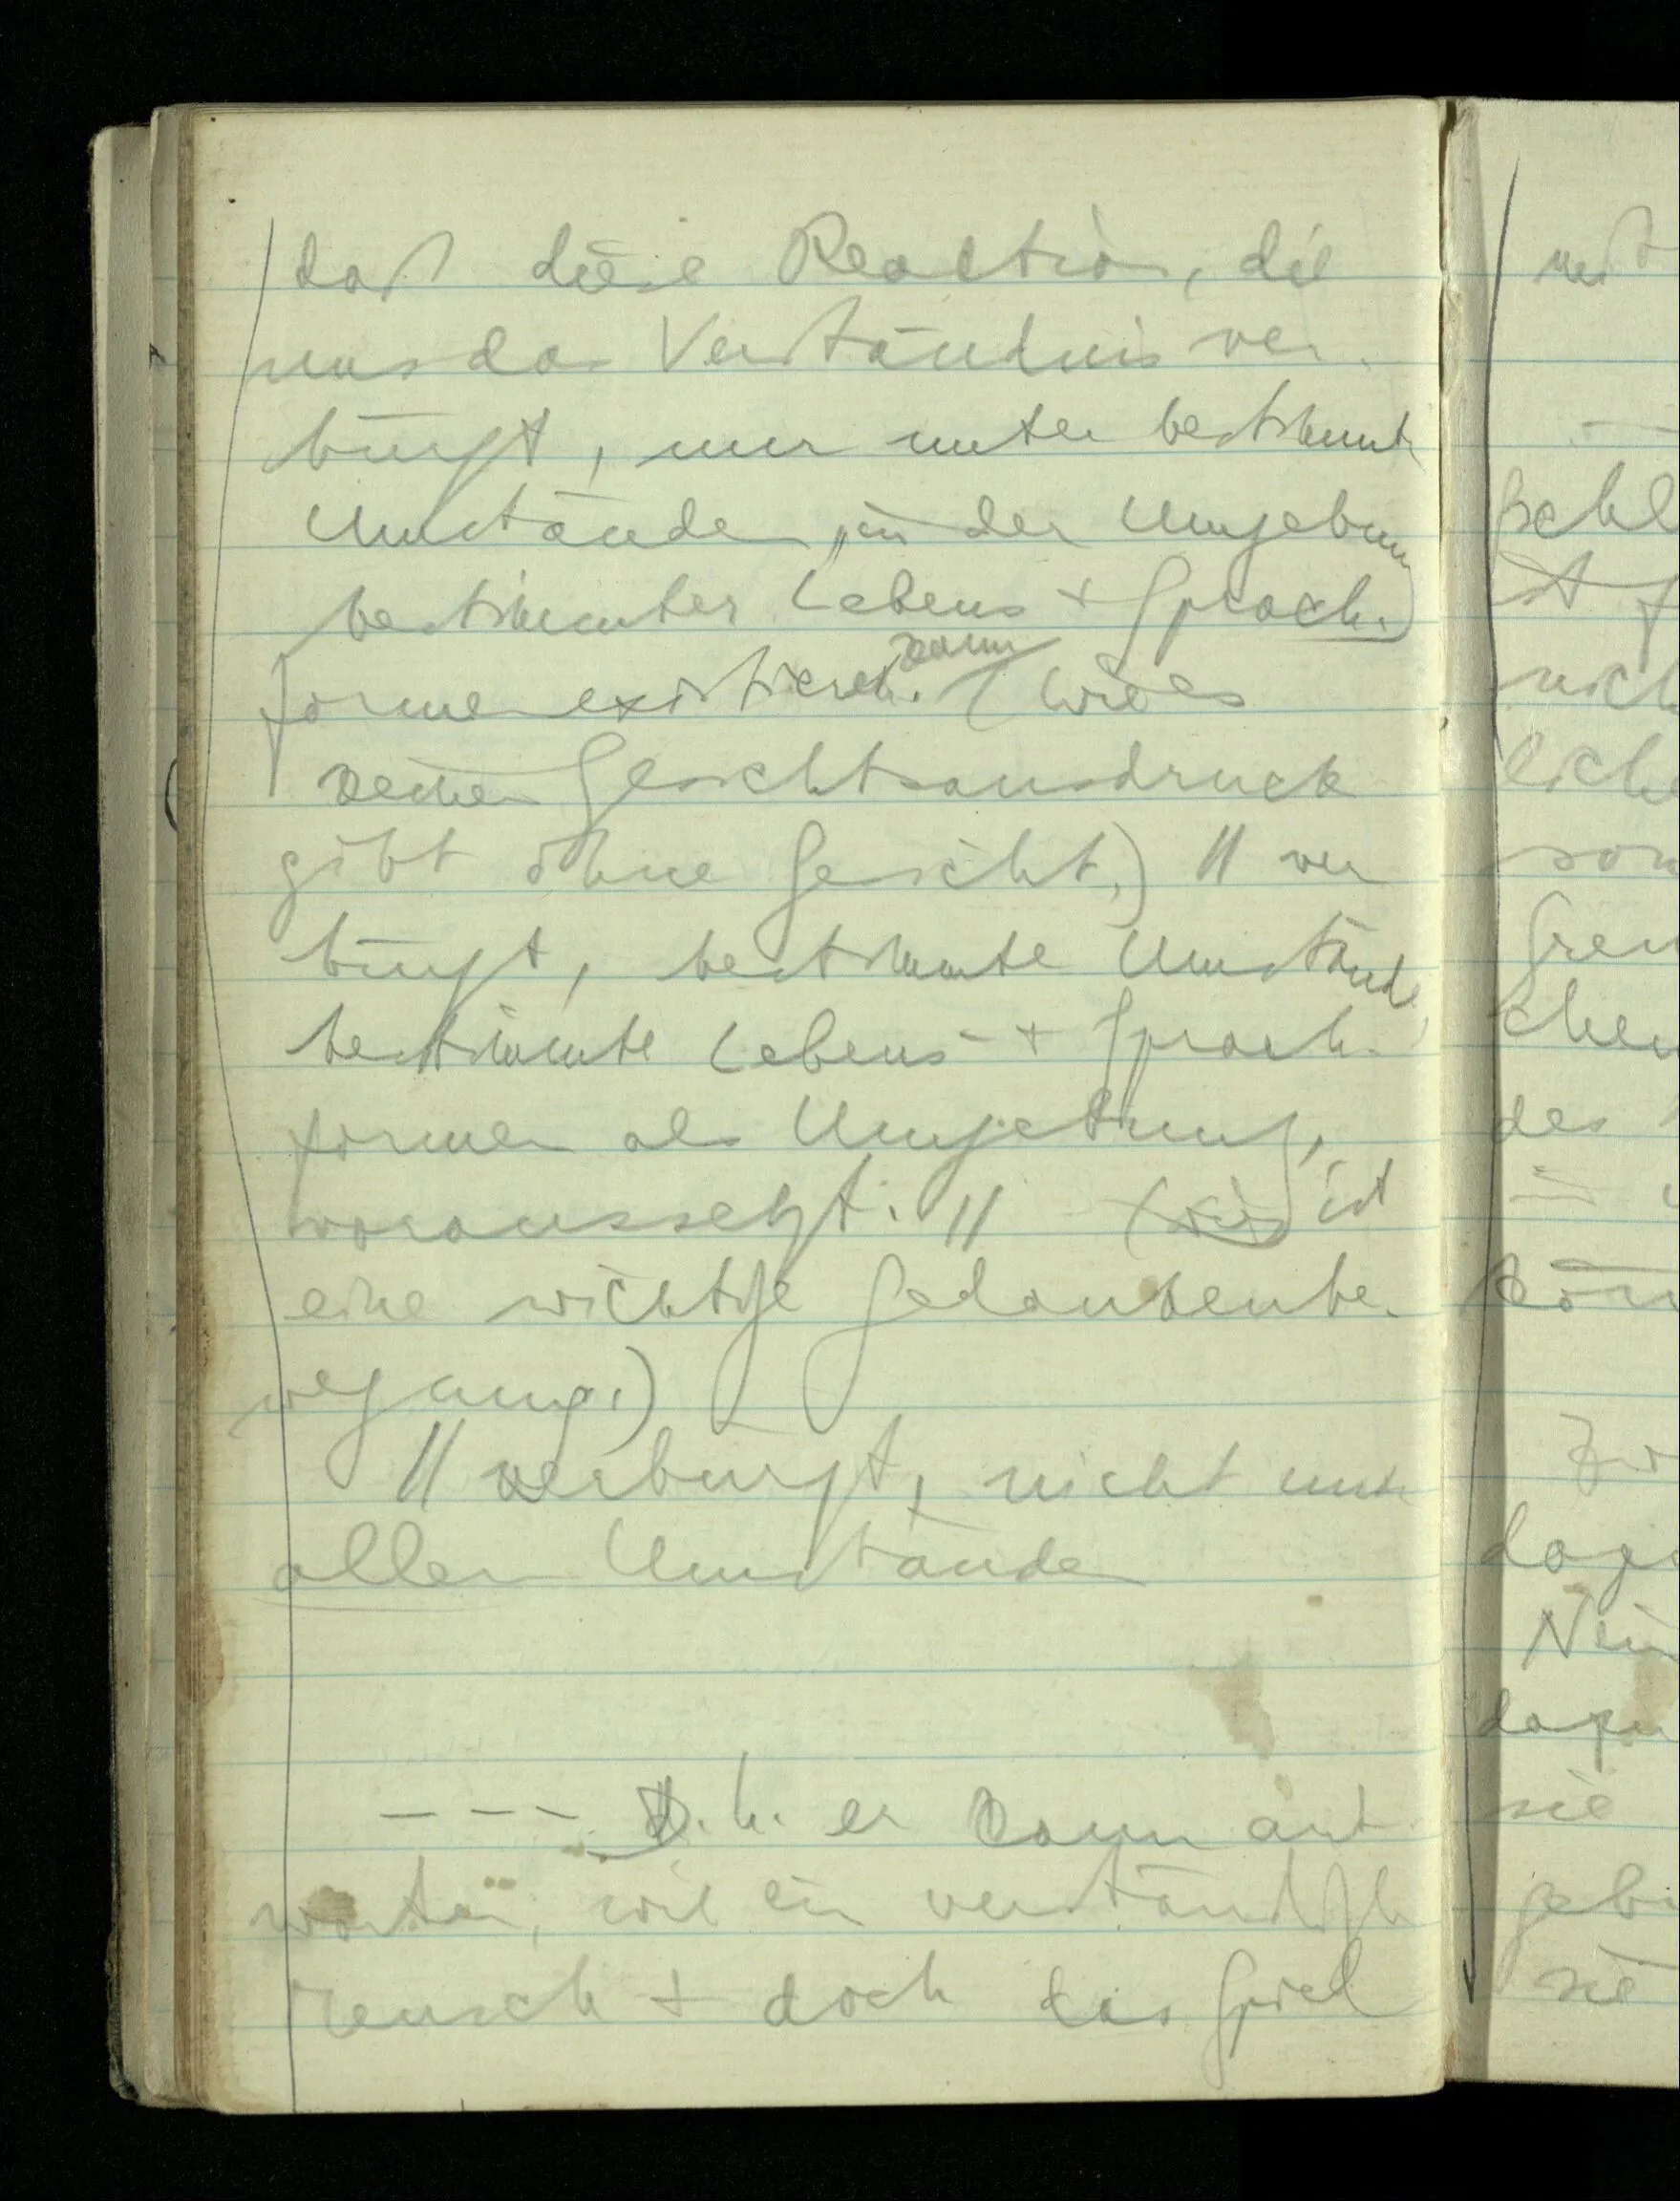 daß diese Reaction, die
uns das Verständnis ver-
bürgt, nur unter bestimmten
Umständen, in der Umgebung
bestimmter Lebens + Sprach-
formen existieren kann. (Wie es
keinen Gesichtsausdruck
gibt ohne Gesicht.) // ver
bürgt, bestimmte Umstände,
bestimmte Lebens- + Sprach-
formen als Umgebung,
voraussetzt. // (Dies ist
eine wichtige Gedankenbe-
wegung.)
// verbürgt, nicht unter
allen Umständen
--- D.h. er kann ant-
worten, wie ein verständiger
Mensch + doch das Spiel